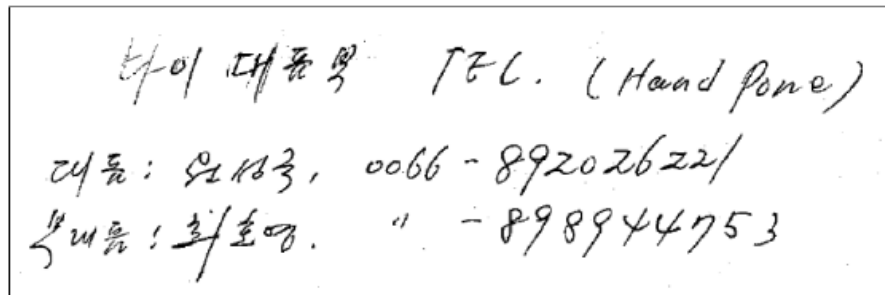 타이 대표부 TEL. (Hand Pone)
대표: 원성국, 0066-892026221
부대표: 최호영. " -898944753